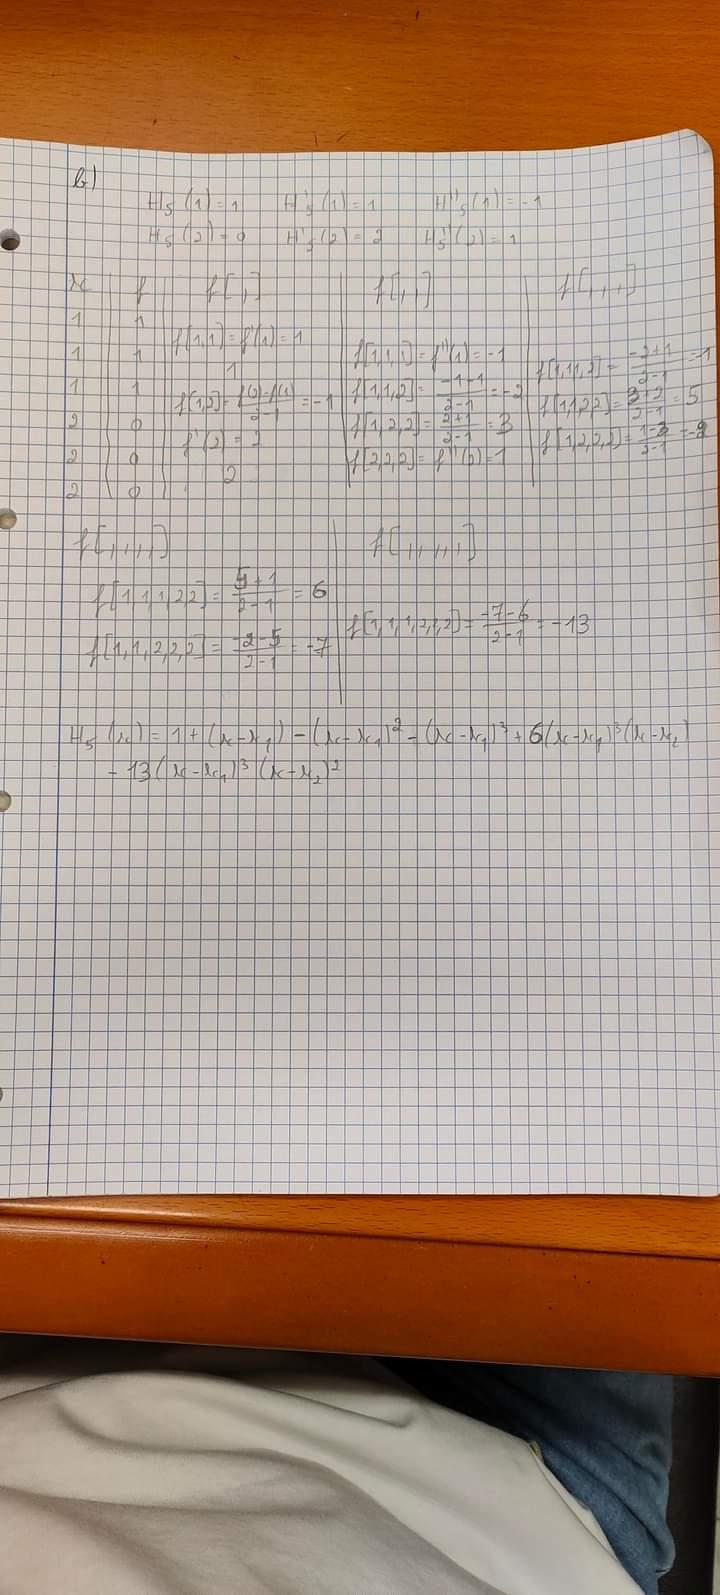 b)
H₅(1)=1 H'₅(1)=1 H''₅(1)=-1
H₅(2)=0 H'₅(2)=2 H₅''(2)=1
x | f | f[,] | f[,,] | f[,,,]
1 1
f[1,1]=f'(1)=1
1 1 f[1,1,1]=f''(1)=-1
1 f[1,1,1,2]=(-2+1)/(2-1)=-1
1 1 f[1,2]=(f(2)-f(1))/(2-1)=-1 f[1,1,2]=(-1-1)/(2-1)=-2
f[1,1,2,2]=(3+2)/(2-1)=5
2 0 f'(2)=2 f[1,2,2]=(2+1)/(2-1)=3
f[1,2,2,2]=(1-3)/(2-1)=-2
2 0 2 f[2,2,2]=f''(2)=1
2 0
f[,,,,] | f[,,,,,]
f[1,1,1,2,2]=(5+1)/(2-1)=6
f[1,1,1,2,2,2]=(-7-6)/(2-1)=-13
f[1,1,2,2,2]=(-2-5)/(2-1)=-7
H₅(x)=1+(x-x₁)-(x-x₁)²-(x-x₁)³+6(x-x₁)³(x-x₂)
-13(x-x₁)³(x-x₂)²